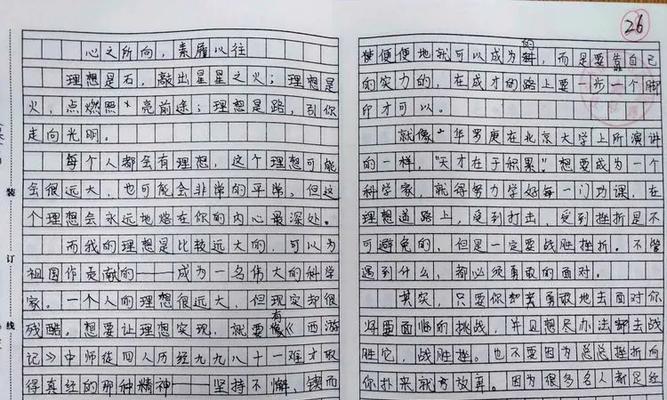 心之所向，素履以往
理想是石，敲出星星之火；理想是
火，点燃照亮前途；理想是路，引你
走向光明。
每个人都会有理想，这个理想可能
会很远大，也可能会非常的平常，但这
个理想会永远地烙在你的内心最深处。
而我的理想是比较远大的，可以为
祖国作贡献的——成为一名伟大的科学
家。一个人的理想很远大，但现实却很
残酷，想要让理想实现，就要有像《西游
记》中师徒四人历经九九八十一难才取
得真经的那种精神——坚持不懈、锲而
装
订
线
26
便便地就可以成为的，而是要靠自己
的实力的，在成才的路上要一步一个脚
印才可以。
就像华罗庚在北京大学上所演讲
的一样，"天才在于积累。"想要成为一个
科学家，就得努力学好每一门功课，在
理想道路上，受到打击，受到挫折是不
可避免的，但是一定要战胜挫折。不管
遇到什么，都必须勇敢的面对。
其实，只要你勇敢地去面对你
将要面临的挑战，并且想尽办法去战
胜它，战胜挫。也不要因为挫折向
你扑来就放弃。因为很多名人都是经